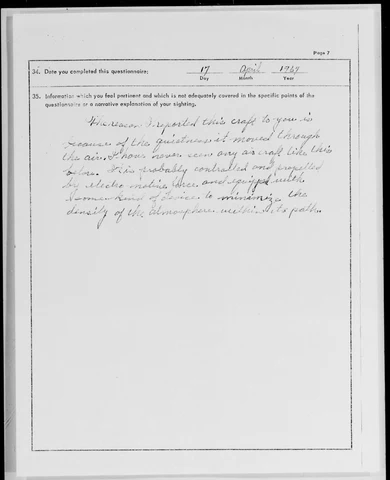 Page 7
34. Date you completed this questionnaire: 17 April 1967
Day Month Year
35. Information which you feel pertinent and which is not adequately covered in the specific points of the
questionnaire or a narrative explanation of your sighting.
The reason I reported this craft to you is
because of the quietness it moved through
the air. I have never seen any air craft like this
before. It is probably controlled and propelled
by electro motive force and equipped with
some kind of device to minimize the
density of the atmosphere within its path.